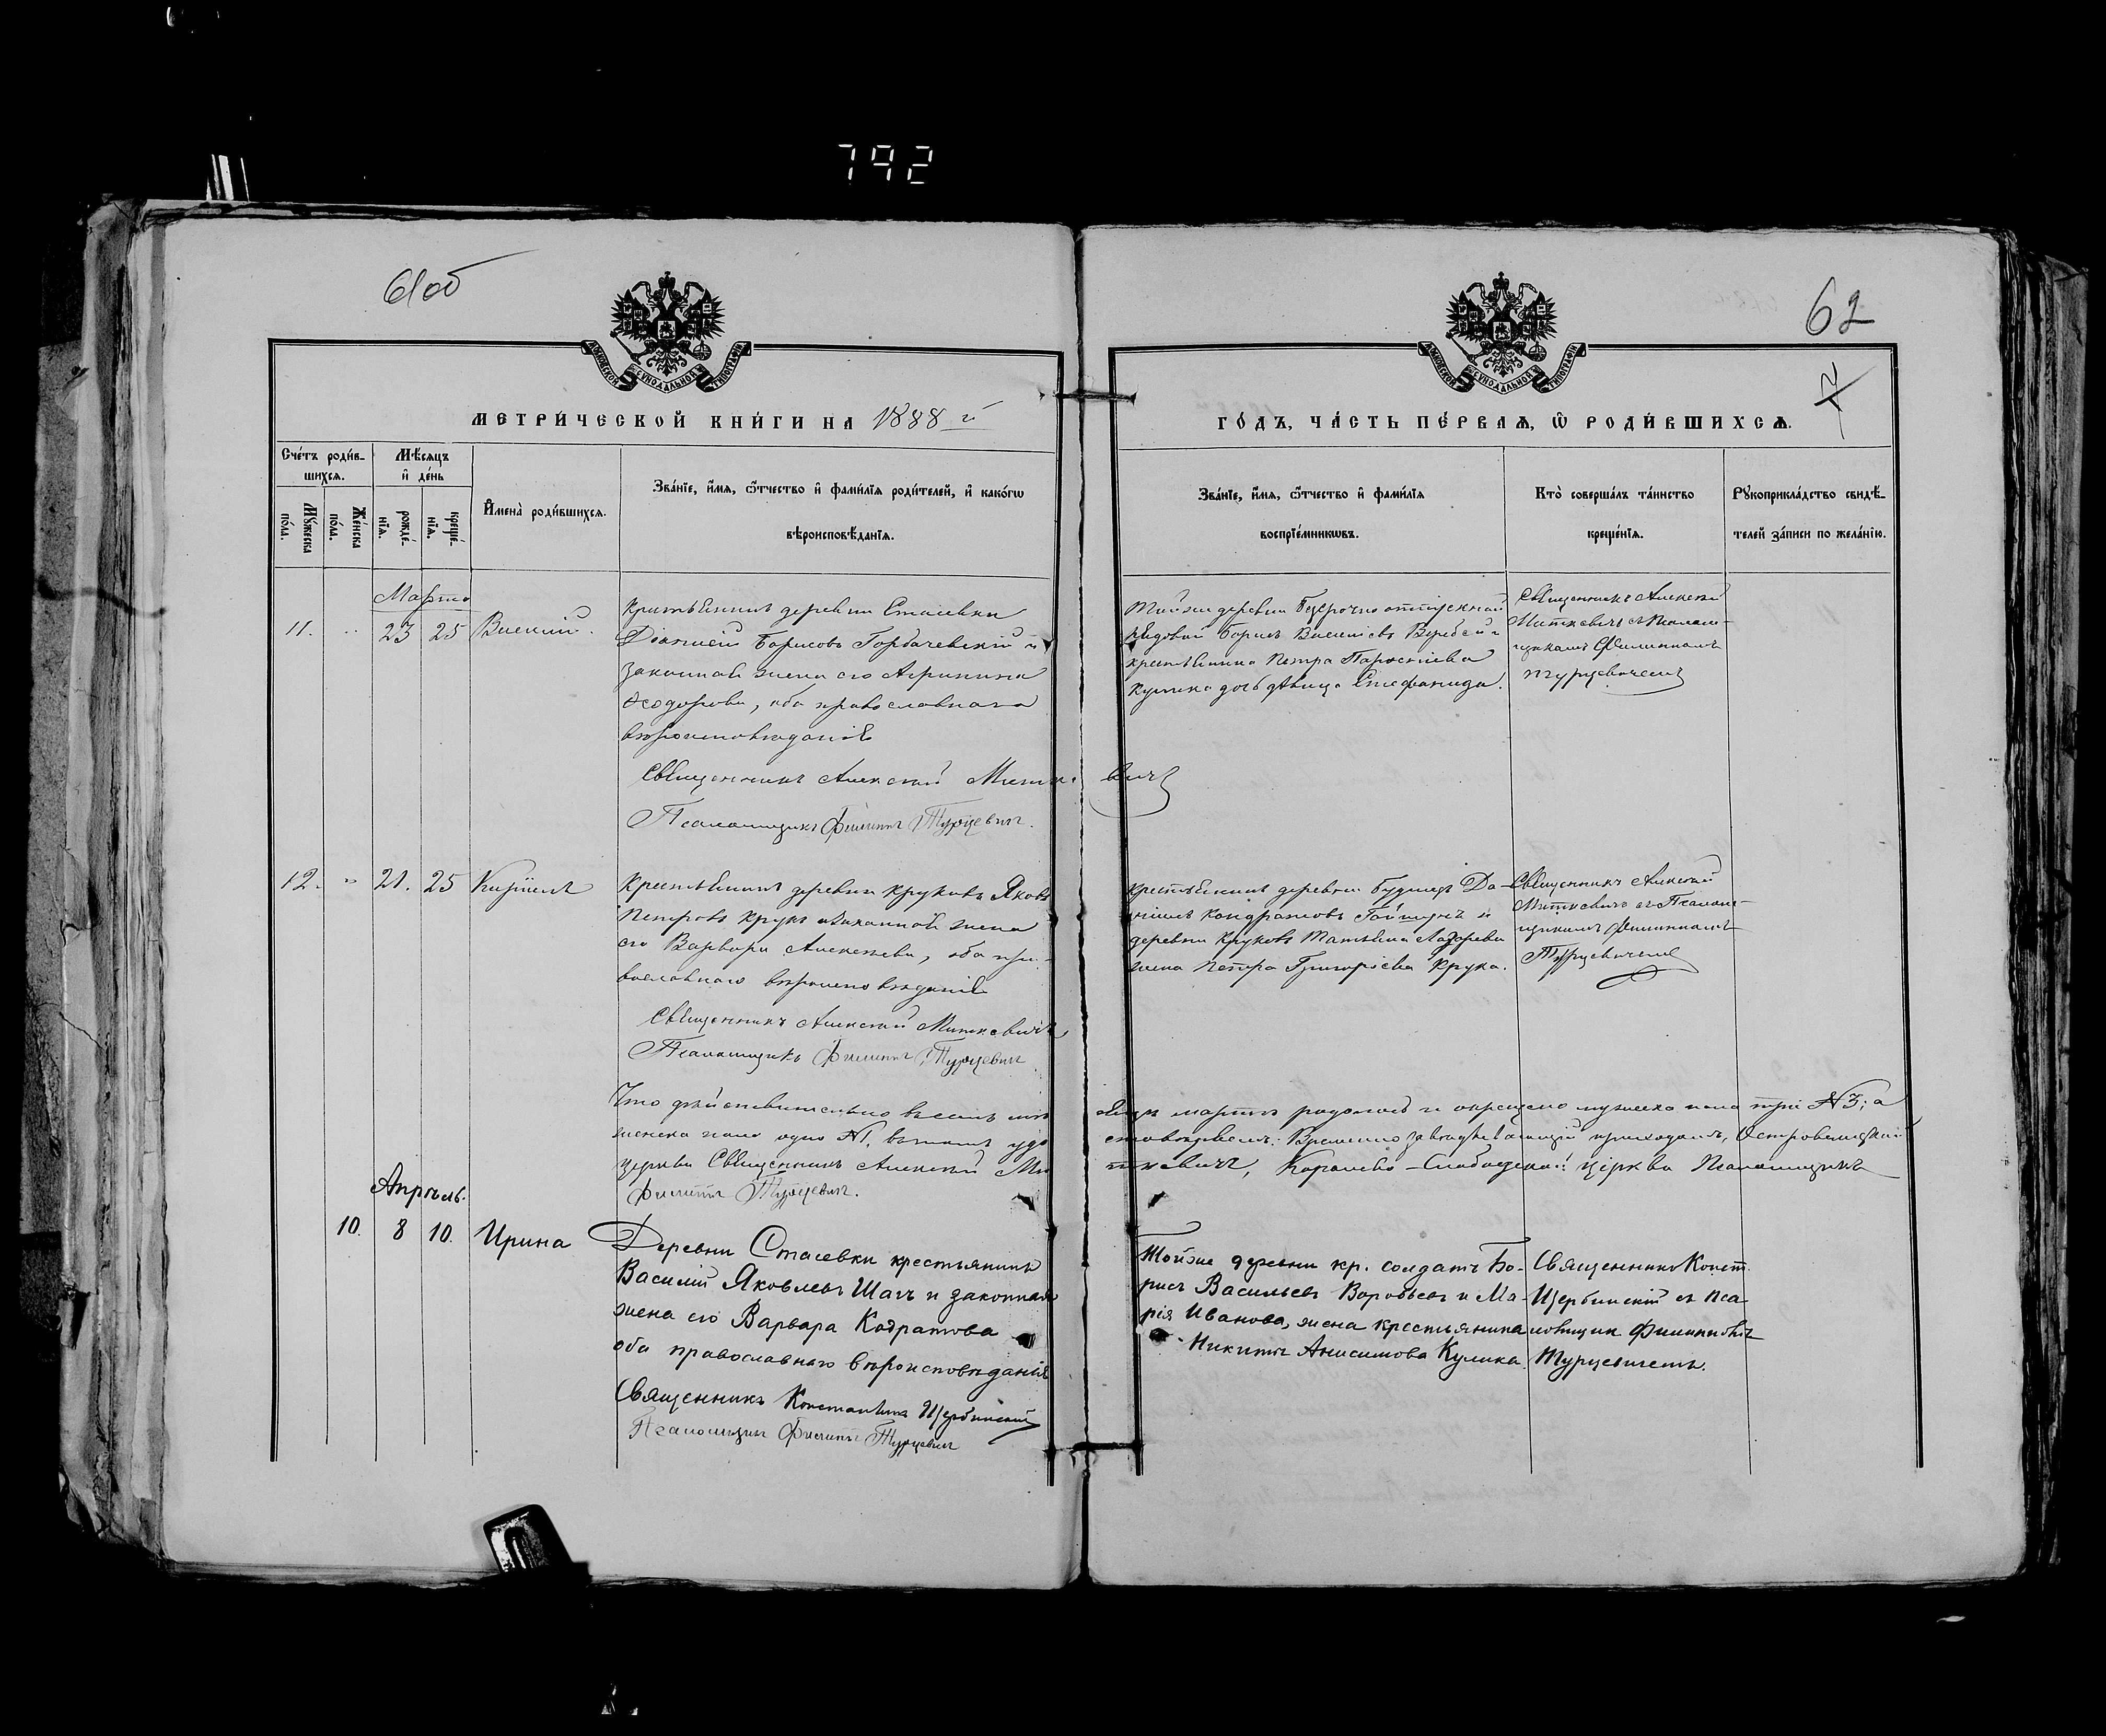 792
61об
62
МЕТРИ́ЧЕСКОЙ КНИ́ГИ НА 1888 й
ГО́ДЪ, ЧА́СТЬ ПЕ́РВАѦ, Ѿ РОДИ́ВШИХСѦ.
Сче́тъ роди́в-
шихсѧ.
Мꙋ́жеска
по́ла.
Же́нска
по́ла.
Мѣ́сѧцъ
и҆ де́нь
рожде́-
нїѧ.
креще́-
нїѧ.
И҆мена̀ роди́вшихсѧ.
Зва́нїе, и҆́мѧ, ѻ҆́тчество и҆ фами́лїѧ роди́телей, и҆ како́гѡ
вѣроисповѣ́данїѧ.
Зва́нїе, и҆́мѧ, ѻ҆́тчество и҆ фами́лїѧ
воспрїе́мникѡвъ.
Кто̀ соверша́лъ та́инство
креще́нїѧ.
Рꙋкоприкла́дство свидѣ́-
телей за́писи по жела́нїю.
Мартъ
11. " 23 25 Василій.
Крестьянинъ деревни Стасевки
Борисовъ Горбачевскій и
законная жена его Агрипина
Ѳеодорова, оба православнаго
вѣроисповѣданія
Священникъ Алексій Миткевичъ
Псаломщикъ Филиппъ Турцевич.
Тойже деревни безсрочно отпускной
рядовой Борисъ Василіевъ и
крестьянина Петра
Кулика дочь дѣвица Стефанида.
Священникъ Алексій
Миткевичъ съ Псалом-
щикомъ Филиппомъ
Турцевичемъ
12. " 21. 25 Кириллъ
Крестьянинъ деревни Круковъ Яковъ
Петровъ Крукъ и законная жена
его Варвара Алексѣева, оба пра-
вославнаго вѣроисповѣданія
Священникъ Алексій Миткевичъ
Псаломщикъ Филиппъ Турцевич
Крестьянинъ деревни Да-
ніилъ Кондратовъ и
деревни Круковъ Татьяна Лазарева
жена Петра Григоріева Крука.
Священникъ Алексій
Миткевичъ съ Псалом-
щикомъ Филиппомъ
Турцевичемъ
Что дѣйствительно въ семъ мѣсяцѣ мартѣ родилось и окрещено мужеска пола три №3; а
женска пола одно №1, въ томъ удостовѣряемъ: Временно завѣдывающій приходомъ,
церкви Священникъ Алексій Миткевичъ, Королево-Слободской церкви Псаломщикъ
Филиппъ Турцевич.
Апрѣль.
10. 8 10. Ирина
Деревни Стасевки крестьянинъ
Василій Яковлевъ Шагъ и законная
жена его Варвара Кодратова
оба православнаго вѣроисповѣданія
Священникъ Константинъ Щербинскій
Псаломщикъ Филиппъ Турцевич
Тойже деревни кр. солдатъ Бо-
рисъ Васильевъ Воробьевъ и Ма-
рія Иванова, жена крестьянина
Никиты Анисимова Кулика.
Священникъ Конст.
Щербинскій съ пса-
ломщик. Филиппомъ
Турцевичемъ.